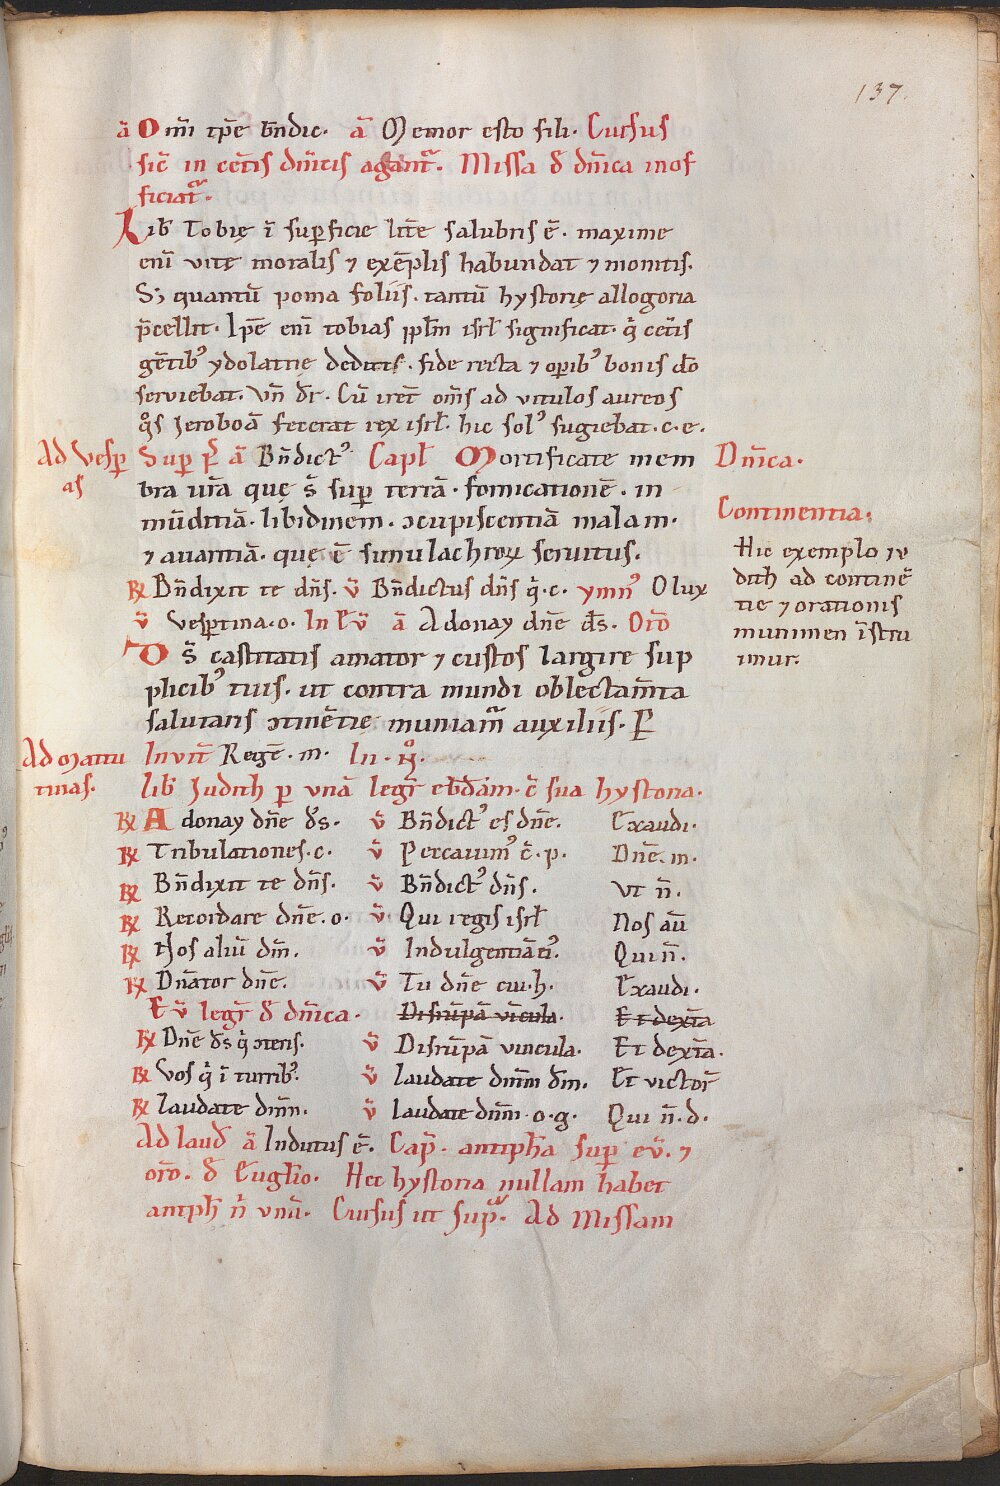 137.
ā Om̄i tp̄e bn̄dic. ā Memor esto fili. Cursus
sic̄ in cet̄is dn̄icis agant᷑. Missa d̄ dn̄ica inof
ficiat᷑.
Lib̄ Tobię ī suꝑficie litt̄e salubris ē. maxime
eni̅ vitę moralis ⁊ exēplis habundat ⁊ monitis.
S; quantū poma foliis. tantū hystorię allogoria
p̄cellit. Ipse eni̅ tobias ppl̄m isrl̄ significat. q̇ cet̄is
gētib᷒ ydolatrię deditis. fide recta ⁊ oꝑib᷒ bonis do̅
serviebat. Vn̄ dr̄. Cū iret̄ om̄s ad vitulos aureos
qͦs Jeroboā fecerat rex isrl̄. hic sol᷒ fugiebat. c. e.
Ad Vesꝑ
as
Suꝑ ps̄ ā Bn̄dict᷒ Capl̄ Mortificate mem
bra vr̄a quę s̄ suꝑ terrā. fornicationē. in
mūditiā. libidinem. ɔcupiscentiā malam.
⁊ avaritiā. quę ē simulachroꝝ servitus.
Dn̄ica.
Continentia.
Hic exemplo iu
dith ad continē
tie ⁊ orationis
munimen īstru
imur.
℟ Bn̄dixit te dn̄s. v̄ Bn̄dictus dn̄s q̇. c. ymn᷒ O lux
v̄ Vesꝑtina. o. In Ev̄ ā Adonay dn̄e ds̄. Orō
Ds̄ castitatis amator ⁊ custos largire sup
plicib᷒ tuis. ut contra mundi oblectam̄ta
salutaris ɔtinētie muniam᷑ auxiliis. P
Ad Mattu
tinas.
Invit̄ Regē. m. In. N̊.
lib̄ Judith ꝑ unā legr̄ ebdām. c̄ sua hystoria.
℟ Adonay dn̄e ds̄. v̄ Bn̄dict᷒ es dn̄e. Exaudi.
℟ Tribulationes. c. v̄ Peccavim᷒ c̄. p. Dn̄e. m.
℟ Bn̄dixit te dn̄s. v̄ Bn̄dict᷒ dn̄s. Vt n̄.
℟ Recordare dn̄e. o. v̄ Qui regis isrl̄ Nos au̅
℟ Nos aliū dm̄. v̄ Indulgentiā ei᷒. Qui n̄.
℟ Dn̄ator dn̄e. v̄ Tu dn̄e cui. h. Exaudi.
Ev̄ legr̄ d̄ dn̄ica. Disrūpā vīcula. Et dext̄a
℟ Dn̄e ds̄ q̇ ɔteris. v̄ Disrūpā vincula. Et dext̄a.
℟ Vos q̇ ī turrib᷒. v̄ laudate dn̄m dm̄. Et victor̄
℟ laudate dn̄m. v̄ laudate dn̄m. o. g. Qui n̄. d.
Ad laud̄ ā Indutus ē. Cap̄. antiph̄a suꝑ ev̄. ⁊
orō. d̄ Eugl̄io. Hec hystoria nullam habet
antph̄ n̄ unā. Cursus ut sup᷑. Ad Missam